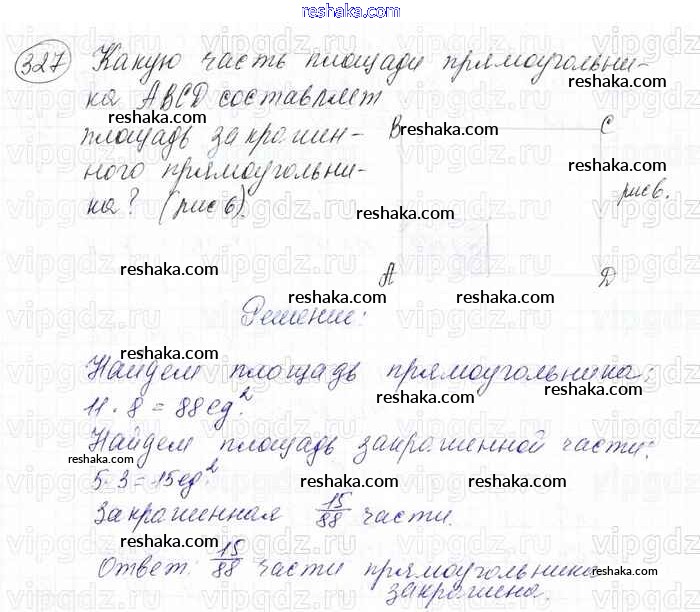 reshaka.com
327 Какую часть площади прямоугольни-
reshaka.com
ка ABCD составляет
reshaka.com
площадь закрашен- B C
reshaka.com
reshaka.com
ного прямоугольни- рис 6.
ка? (рис 6).
reshaka.com
reshaka.com
reshaka.com
A D
reshaka.com
reshaka.com
Решение:
reshaka.com
Найдем площадь прямоугольника:
reshaka.com
11 · 8 = 88 ед².
Найдем площадь закрашенной части:
reshaka.com
reshaka.com
5·3=15ед²
reshaka.com
Закрашенная 15/88 части.
Ответ: 15/88 части прямоугольника
reshaka.com
reshaka.com
закрашена.